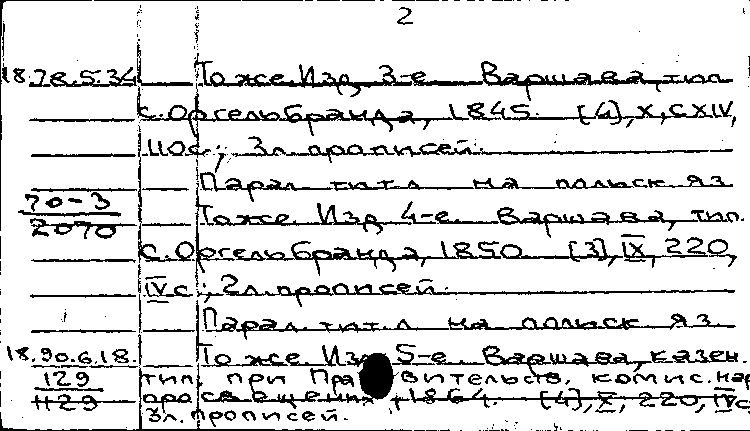 2
18.78.5.34 То же. Изд. 3-е. Варшава, тип.
С. Оргельбранда, 1845. [4], X, CXIV,
110с.; 3л. прописей.
Парал. тит. л. на польск. яз.
70-3
2070
То же. Изд. 4-е. Варшава, тип.
С. Оргельбранда, 1850. [3], IX, 220,
IVс.; 2л. прописей.
Парал. тит. л. на польск. яз.
18.90.6.18. То же. Изд. 5-е. Варшава, казен.
129 тип. при Правительств. комис. нар.
1129 просвещения, 1864. [4], X, 220, IVс.
3л. прописей.